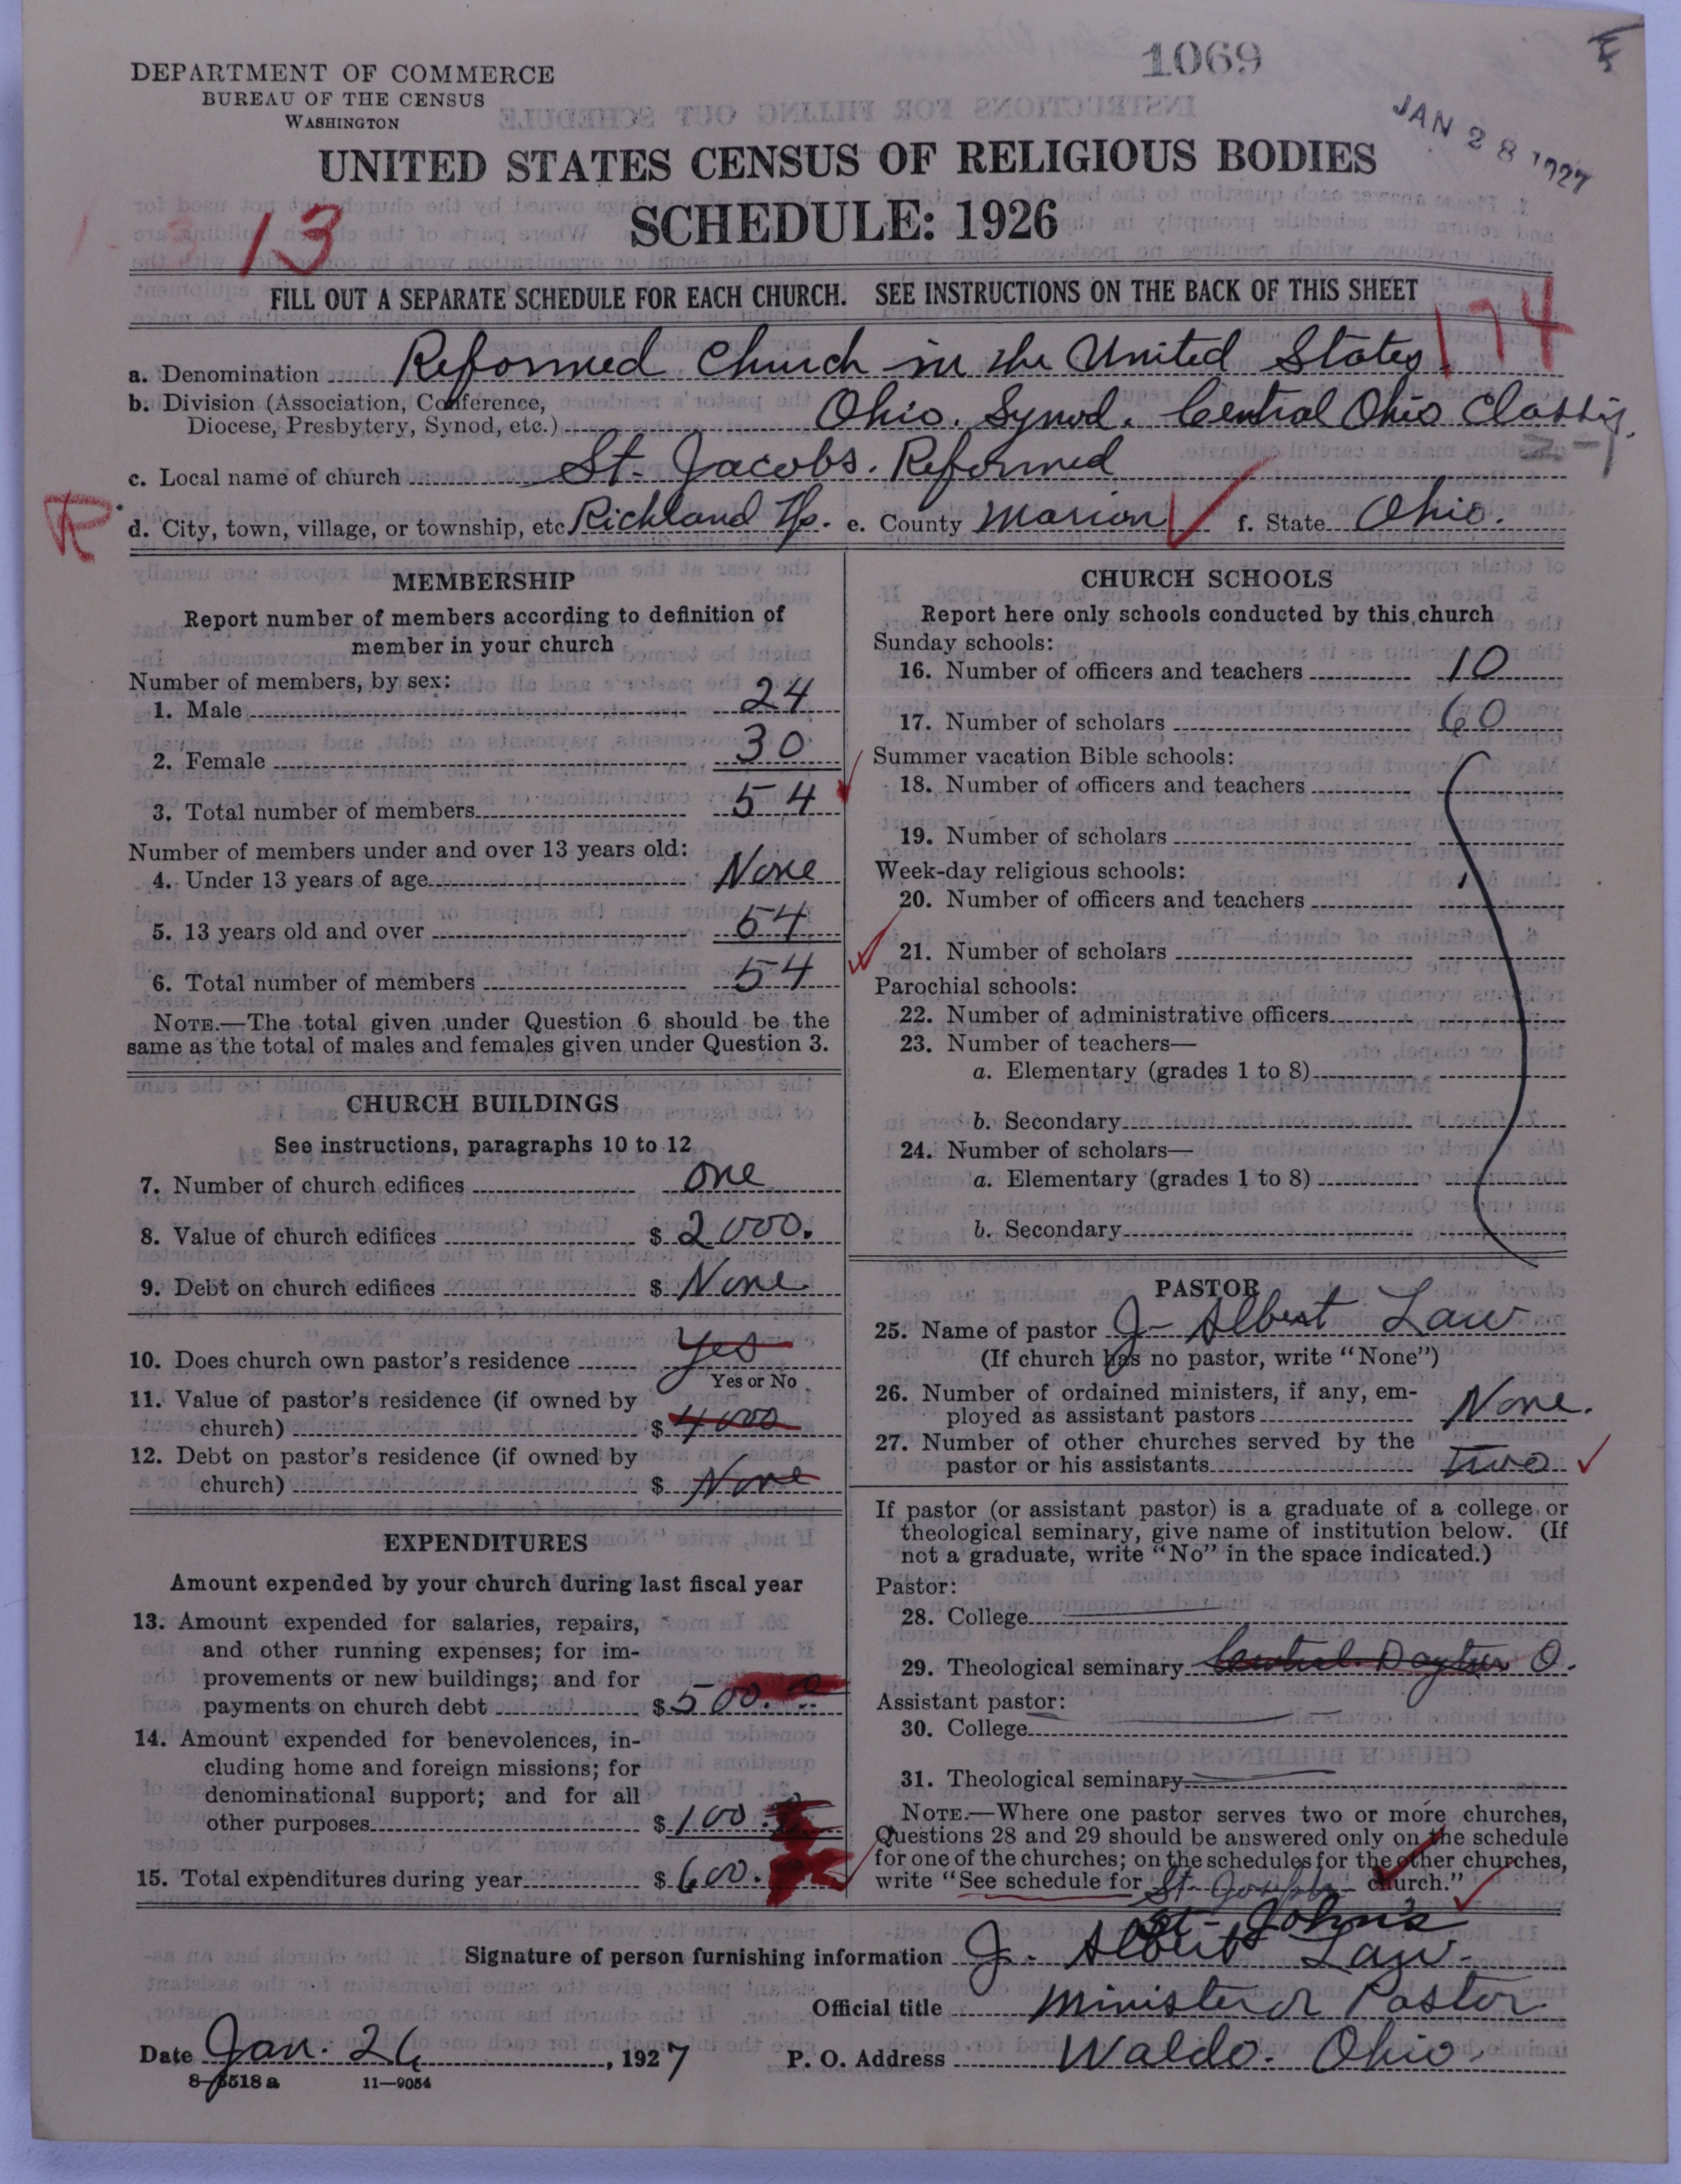 1069
DEPARTMENT OF COMMERCE
BUREAU OF THE CENSUS
WASHINGTON
JAN 28 1927
UNITED STATES CENSUS OF RELIGIOUS BODIES
SCHEDULE: 1926
13
FILL OUT A SEPARATE SCHEDULE FOR EACH CHURCH. SEE INSTRUCTIONS ON THE BACK OF THIS SHEET
174
a. Denomination Reformed Church in the United States
b. Division (Association, Conference,
Diocese, Presbytery, Synod, etc.) Ohio. Synod. Central Ohio Classis.
c. Local name of church St. Jacobs. Reformed
R
d. City, town, village, or township, etc Richland Tp. e. County Marion f. State Ohio.
MEMBERSHIP
Report number of members according to definition of
member in your church
Number of members, by sex:
1. Male 24
2. Female 30
3. Total number of members 54
Number of members under and over 13 years old:
4. Under 13 years of age None
5. 13 years old and over 54
6. Total number of members 54
NOTE.—The total given under Question 6 should be the
same as the total of males and females given under Question 3.
CHURCH BUILDINGS
See instructions, paragraphs 10 to 12
7. Number of church edifices one
8. Value of church edifices $ 2000.
9. Debt on church edifices $ None.
10. Does church own pastor's residence Yes
Yes or No
11. Value of pastor's residence (if owned by
church) $ 4000
12. Debt on pastor's residence (if owned by
church) $ None
EXPENDITURES
Amount expended by your church during last fiscal year
13. Amount expended for salaries, repairs,
and other running expenses; for im-
provements or new buildings; and for
payments on church debt $ 500.
14. Amount expended for benevolences, in-
cluding home and foreign missions; for
denominational support; and for all
other purposes $ 100.
15. Total expenditures during year $ 600.
CHURCH SCHOOLS
Report here only schools conducted by this church
Sunday schools:
16. Number of officers and teachers 10
17. Number of scholars 60
Summer vacation Bible schools:
18. Number of officers and teachers
19. Number of scholars
Week-day religious schools:
20. Number of officers and teachers
21. Number of scholars
Parochial schools:
22. Number of administrative officers
23. Number of teachers—
a. Elementary (grades 1 to 8)
b. Secondary
24. Number of scholars—
a. Elementary (grades 1 to 8)
b. Secondary
PASTOR
25. Name of pastor J. Albert Law
(If church has no pastor, write "None")
26. Number of ordained ministers, if any, em-
ployed as assistant pastors None.
27. Number of other churches served by the
pastor or his assistants two
If pastor (or assistant pastor) is a graduate of a college or
theological seminary, give name of institution below. (If
not a graduate, write "No" in the space indicated.)
Pastor:
28. College
29. Theological seminary Central. Dayton O.
Assistant pastor:
30. College
31. Theological seminary
NOTE.—Where one pastor serves two or more churches,
Questions 28 and 29 should be answered only on the schedule
for one of the churches; on the schedules for the other churches,
write "See schedule for St. church."
St. John's
Signature of person furnishing information J. Albert Law.
Official title Minister or Pastor
Date Jan. 26, 1927 P. O. Address Waldo. Ohio.
8-5518 a 11—9054